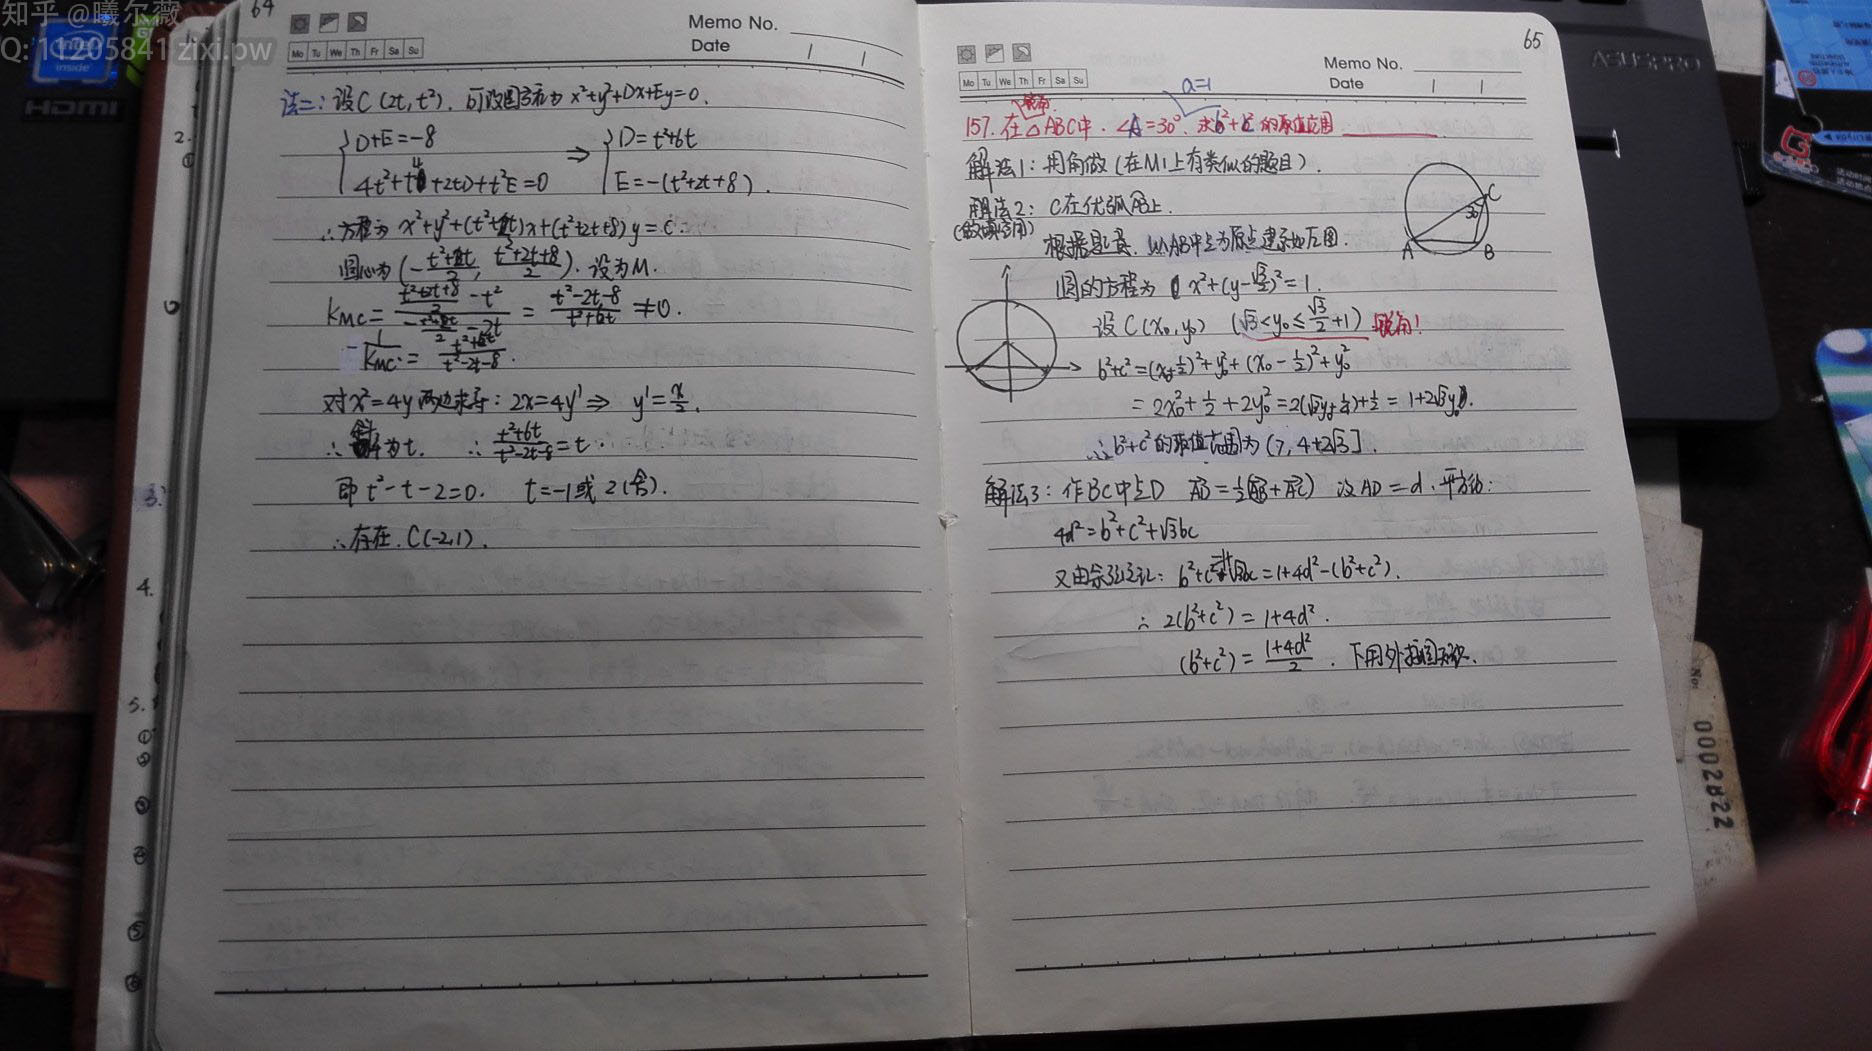 知乎 @曦尔薇
Q: 11205841 zixi.pw
intel inside
HDMI
64
Memo No.
Date
Mo Tu We Th Fr Sa Su
法二: 设C(2t, t²). 可设圆方程为 x²+y²+Dx+Ey=0.
{D+E=-8
4t²+t⁴+2tD+t²E=0
⇒ {D=t²+6t
E=-(t²+2t+8).
∴方程为 x²+y²+(t²+6t)x+(t²+2t+8)y=0.
圆心为(-t²+6t/2, t²+2t+8/2). 设为M.
K_MC = (t²+2t+8/2 - t²)/(-t²+6t/2 - 2t) = t²-2t-8/t²+6t ≠0.
-1/K_MC = t²+6t/t²-2t-8.
对x²=4y两边求导: 2x=4y' ⇒ y'=x/2.
∴斜率为t. ∴ t²+6t/t²-2t-8=t.
即 t²-t-2=0. t=-1或2(舍).
∴存在. C(-2,1).
2.
3.
4.
5.
65
Memo No.
Date
Mo Tu We Th Fr Sa Su
a=1
锐角
157. 在△ABC中. ∠A=30°. 求b²+c²的取值范围
解法1: 用角做(在M1上有类似的题目).
解法2: C在优弧AB上.
(做填空用)
根据题意. 以AB中点为原点建系如左图.
圆的方程为 x²+(y-√3/2)²=1.
设C(x₀,y₀) (√3<y₀≤√3/2+1) 锐角!
b²+c²=(x₀+1/2)²+y₀²+(x₀-1/2)²+y₀²
=2x₀²+1/2+2y₀²=2(√3y₀+1/4)+1/2=1+2√3y₀.
∴b²+c²的取值范围为(7, 4+2√3].
解法3: 作BC中点D AD=1/2(AB+AC) 设AD=d. 平方得:
4d²=b²+c²+√3bc
又由余弦定理: b²+c²-1=√3bc=1+4d²-(b²+c²).
∴ 2(b²+c²)=1+4d².
(b²+c²)=1+4d²/2. 下用外接圆知识.
A
B
C
30°
ASUSPRO
No:
0002822